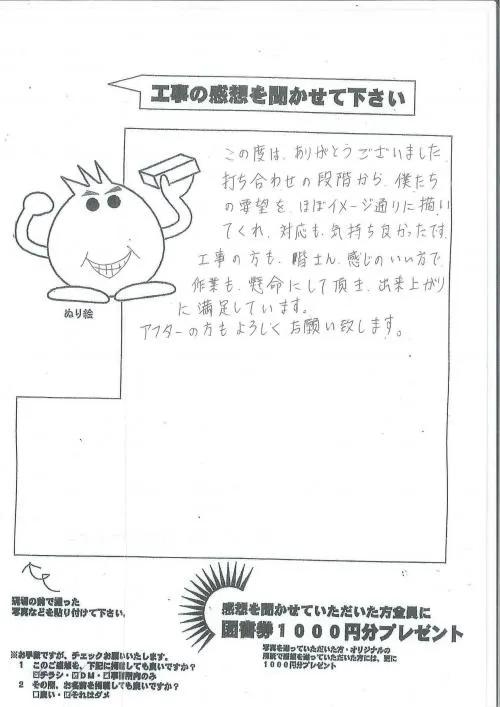 工事の感想を聞かせて下さい
この度は、ありがとうございました。
打ち合わせの段階から、僕たち
の要望を、ほぼイメージ通りに描い
てくれ、対応も、気持ち良かったです。
工事の方も、皆さん、感じのいい方で、
作業も、懸命にして頂き、出来上がり
に満足しています。
アフターの方もよろしくお願い致します。
ぬり絵
現場の前で撮った
写真などを貼り付けて下さい。
感想を聞かせていただいた方全員に
図書券1000円分プレゼント
写真を送っていただいた方・オリジナルの
用紙で感想を送っていただいた方には、更に
1000円分プレゼント
※お手数ですが、チェックお願いいたします。
1 このご感想を、下記に掲載しても良いですか？
☑チラシ・☑DM・☑事務所内のみ
2 その際、お名前を掲載しても良いですか？
□良い・☑それはダメ